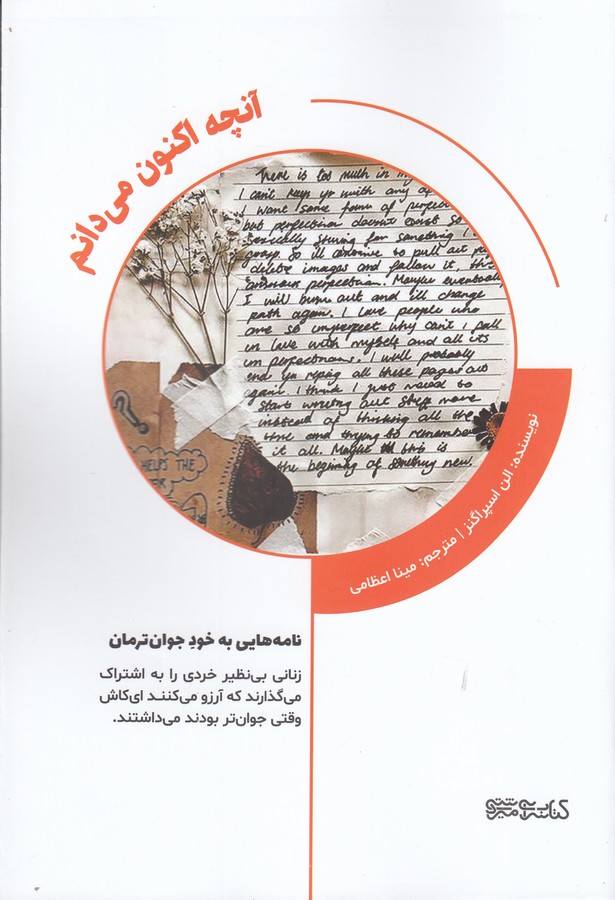 آنچه اکنون می‌دانم
There is too much in my
I can't keep up with any of
I want some form of perfect
but perfection doesn't exist so
grasp. So ill continue to pull out pa
delete images and follow it, this
perfectionism. Maybe eventually
I will burn out and ill change
path again. I love people who
are so imperfect why can't I fall
in love with myself and all its
imperfections. I will probably
end up ripping all these pages out
again. I think I just need to
start writing out step more
instead of thinking all the
time and trying to remember
it all. Maybe this is
the beginning of something new.
?
HELPS THE
نویسنده: الن اسپراگنز | مترجم: مینا اعظامی
نامه‌هایی به خودِ جوان‌ترمان
زنانی بی‌نظیر خردی را به اشتراک
می‌گذارند که آرزو می‌کنند ای‌کاش
وقتی جوان‌تر بودند می‌داشتند.
کتابسرای میردشتی